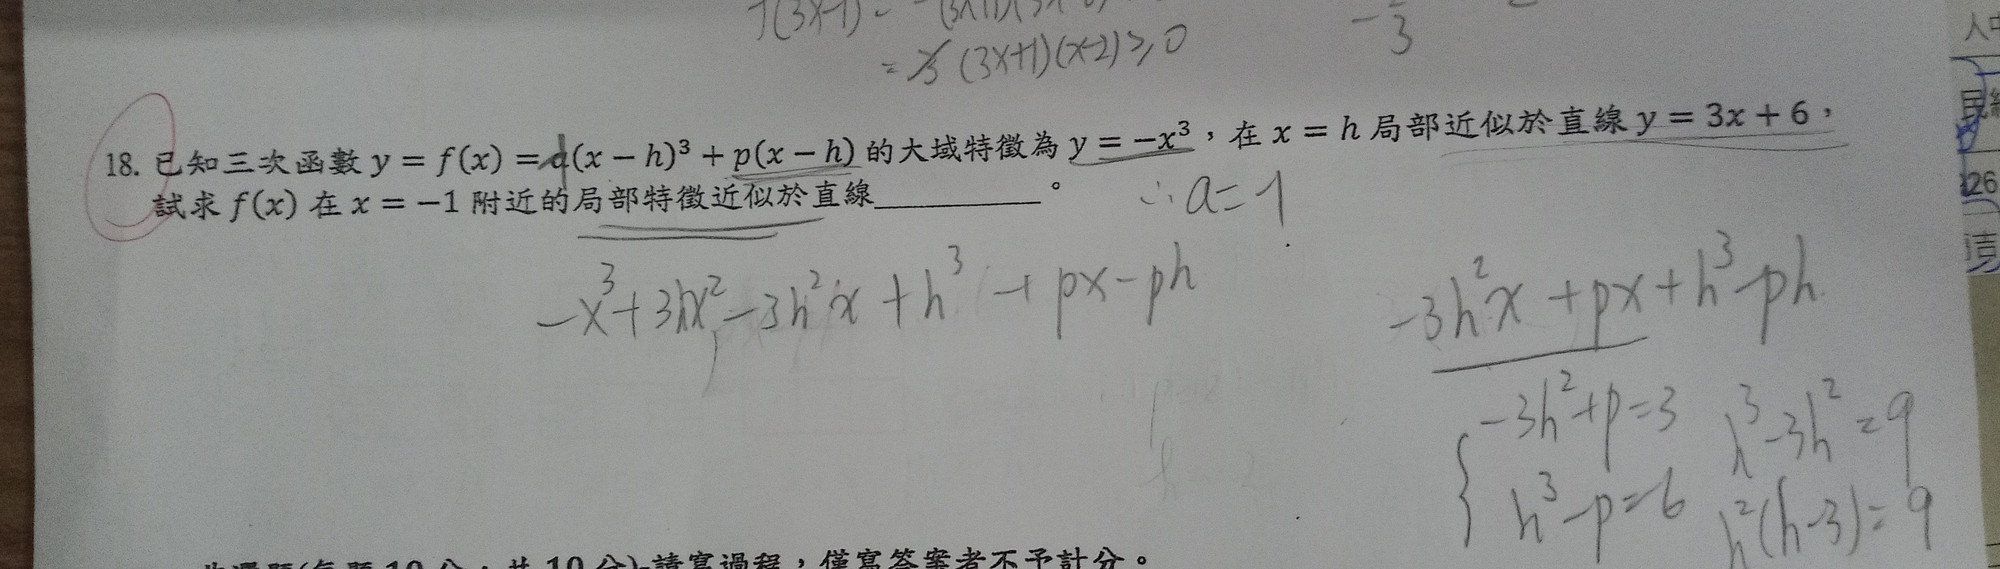 f(3x-1) =
= -3 (3x+1)(x-2) ≥ 0
- 1/3
18. 已知三次函數 y = f(x) = a(x − h)³ + p(x − h) 的大域特徵為 y = −x³,在 x = h 局部近似於直線 y = 3x + 6,
試求 f(x) 在 x = −1 附近的局部特徵近似於直線__________。
∴ a = -1
-x³+3hx²-3h²x+h³+px-ph
-3h²x+px+h³-ph
-3h²+p=3
h³-p=6
h³-3h²=9
h²(h-3)=9
10 分,共 10 分)-請寫過程,僅寫答案者不予計分。
26